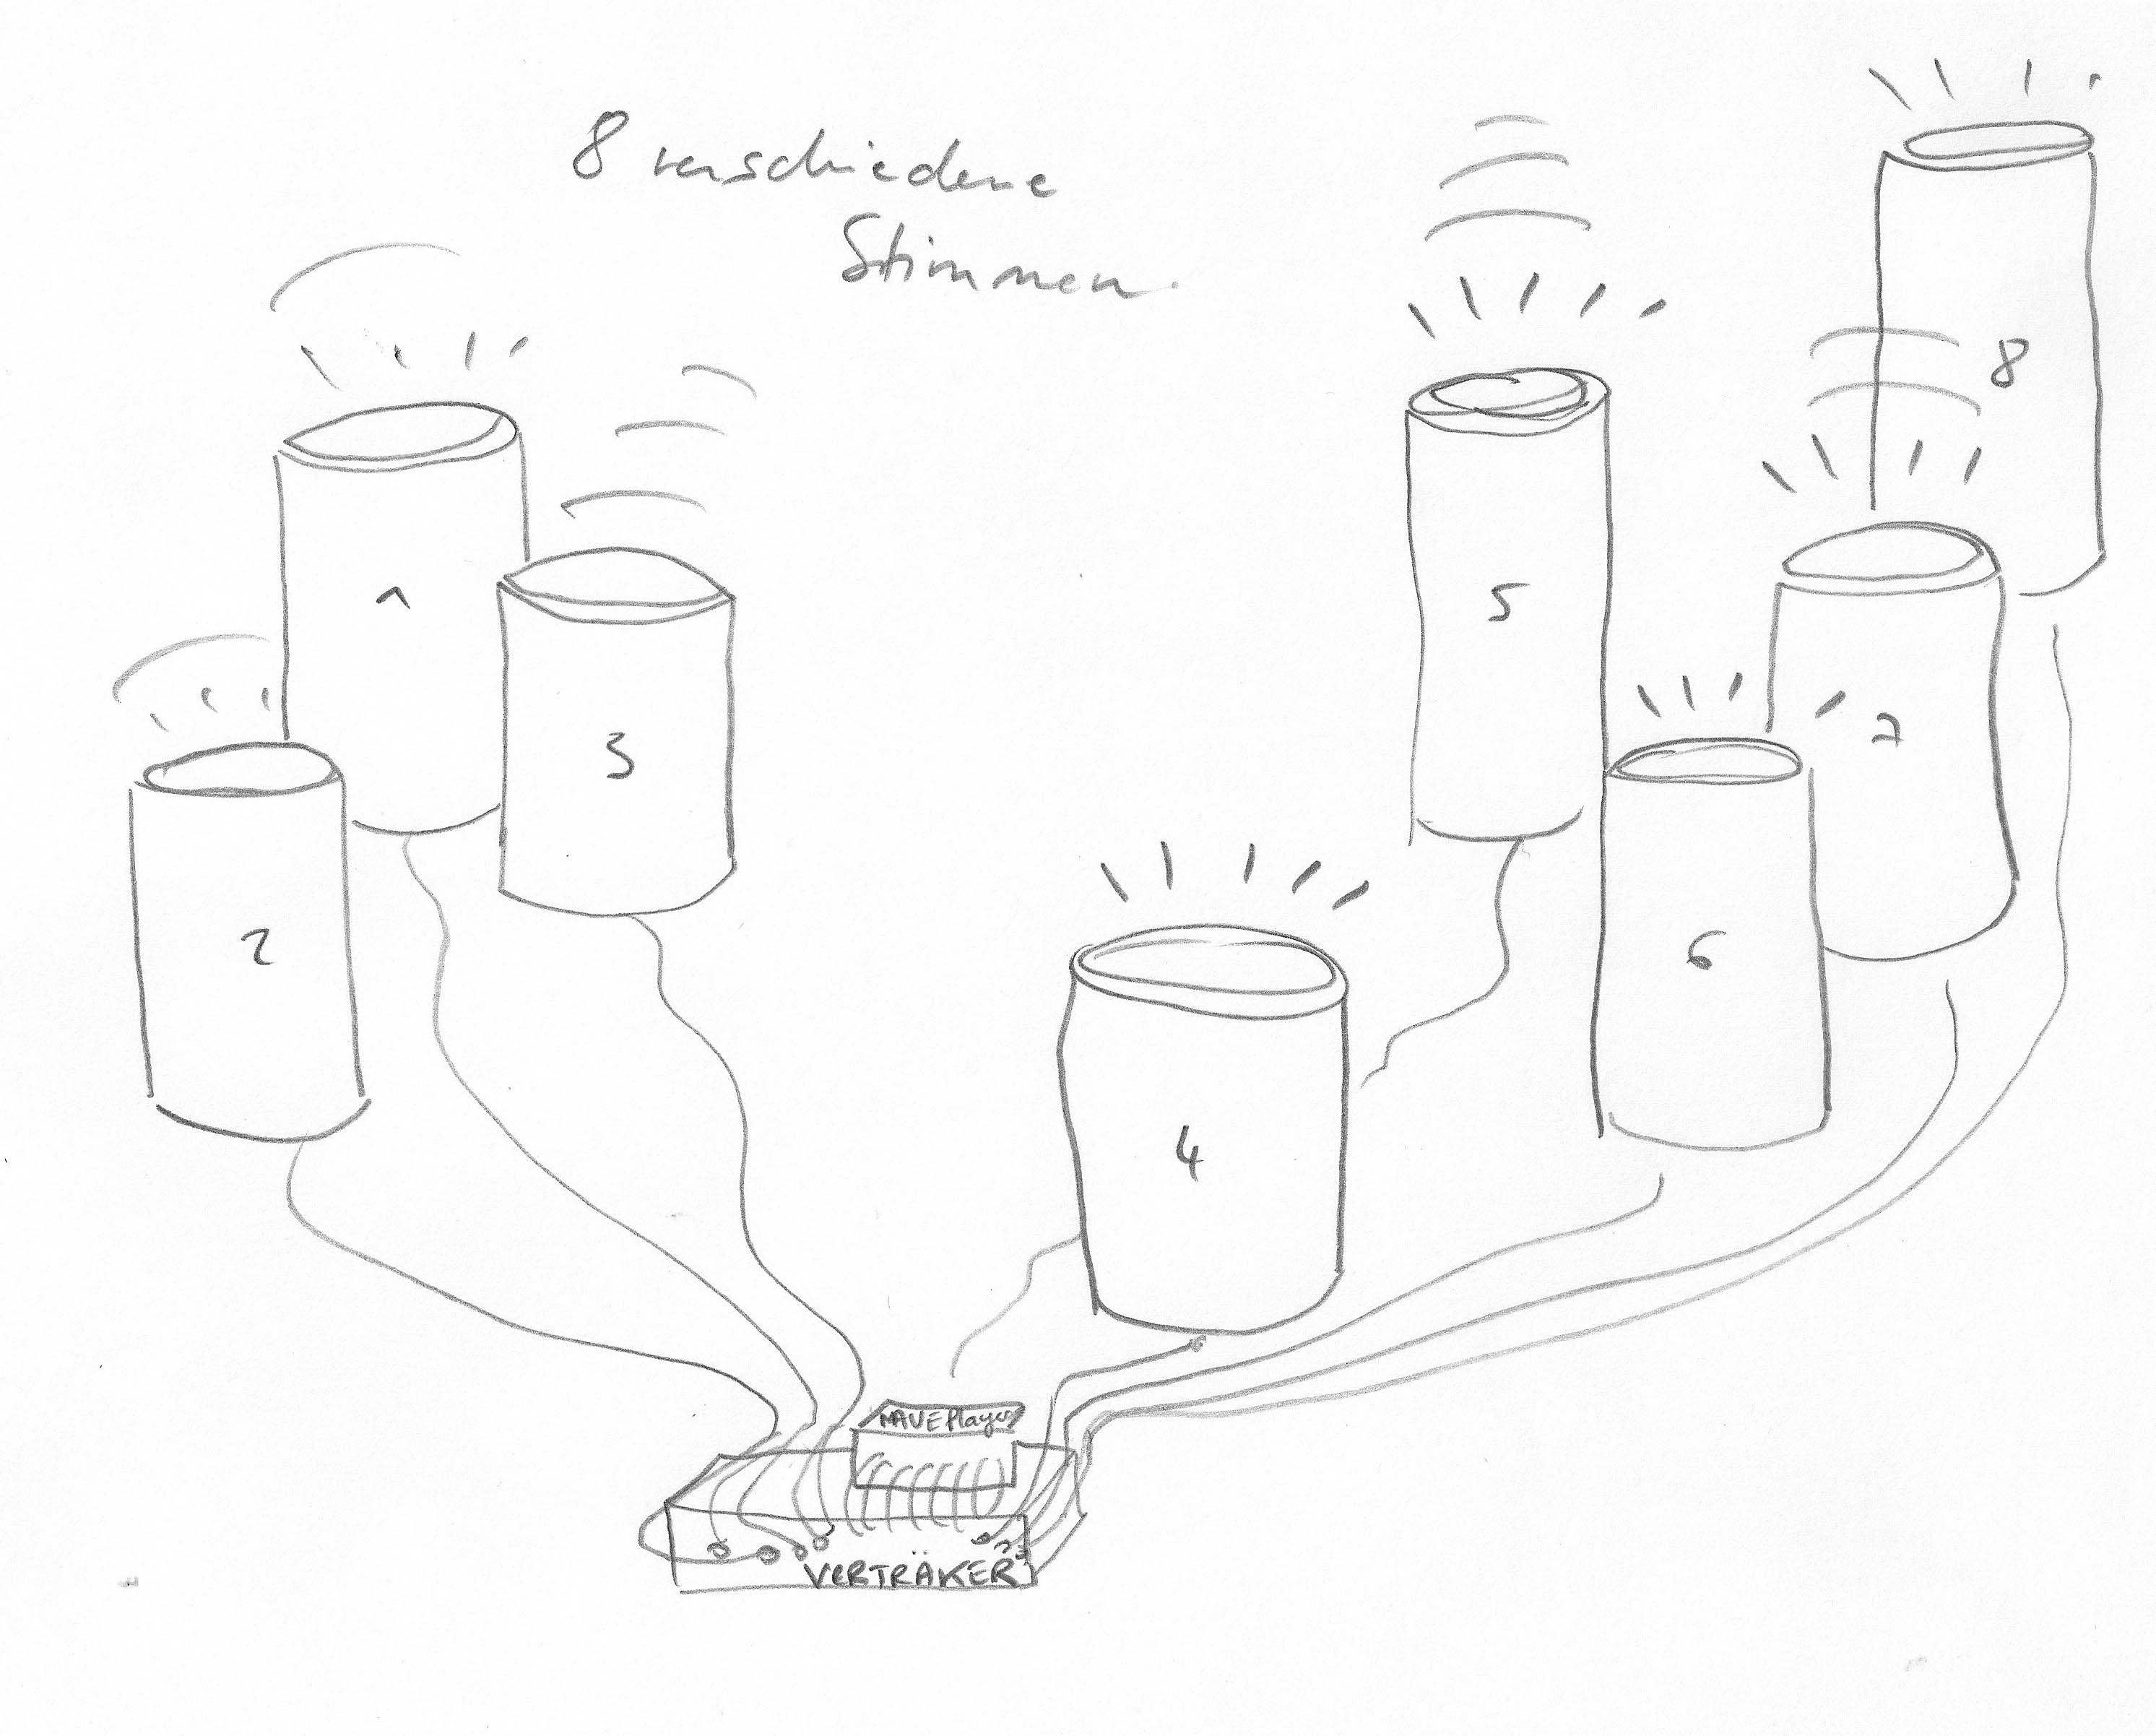 8 verschiedene
Stimmen.
8
1
5
3
7
2
6
4
WAVEPlayer
VERTRÄKER